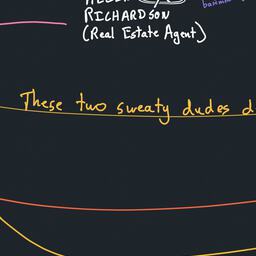 RICHARDSON
(Real Estate Agent)
These two sweaty dudes d